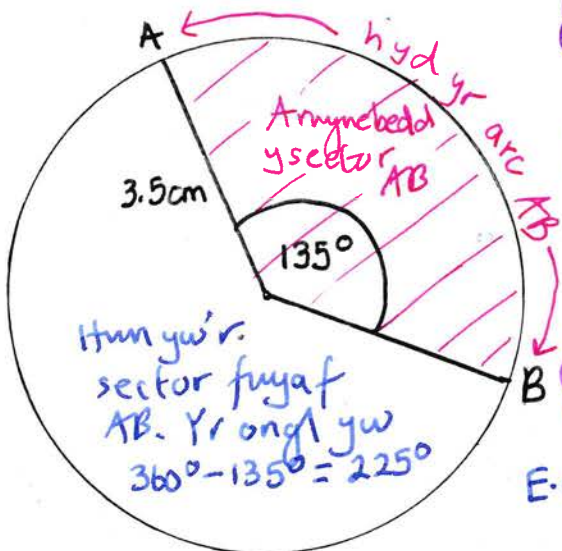 A
hyd yr arc AB
Arwynebedd
y sector
AB
3.5cm
135°
B
Hwn yw'r.
sector fwyaf
AB. Yr ongl yw
360° - 135° = 225°
E.